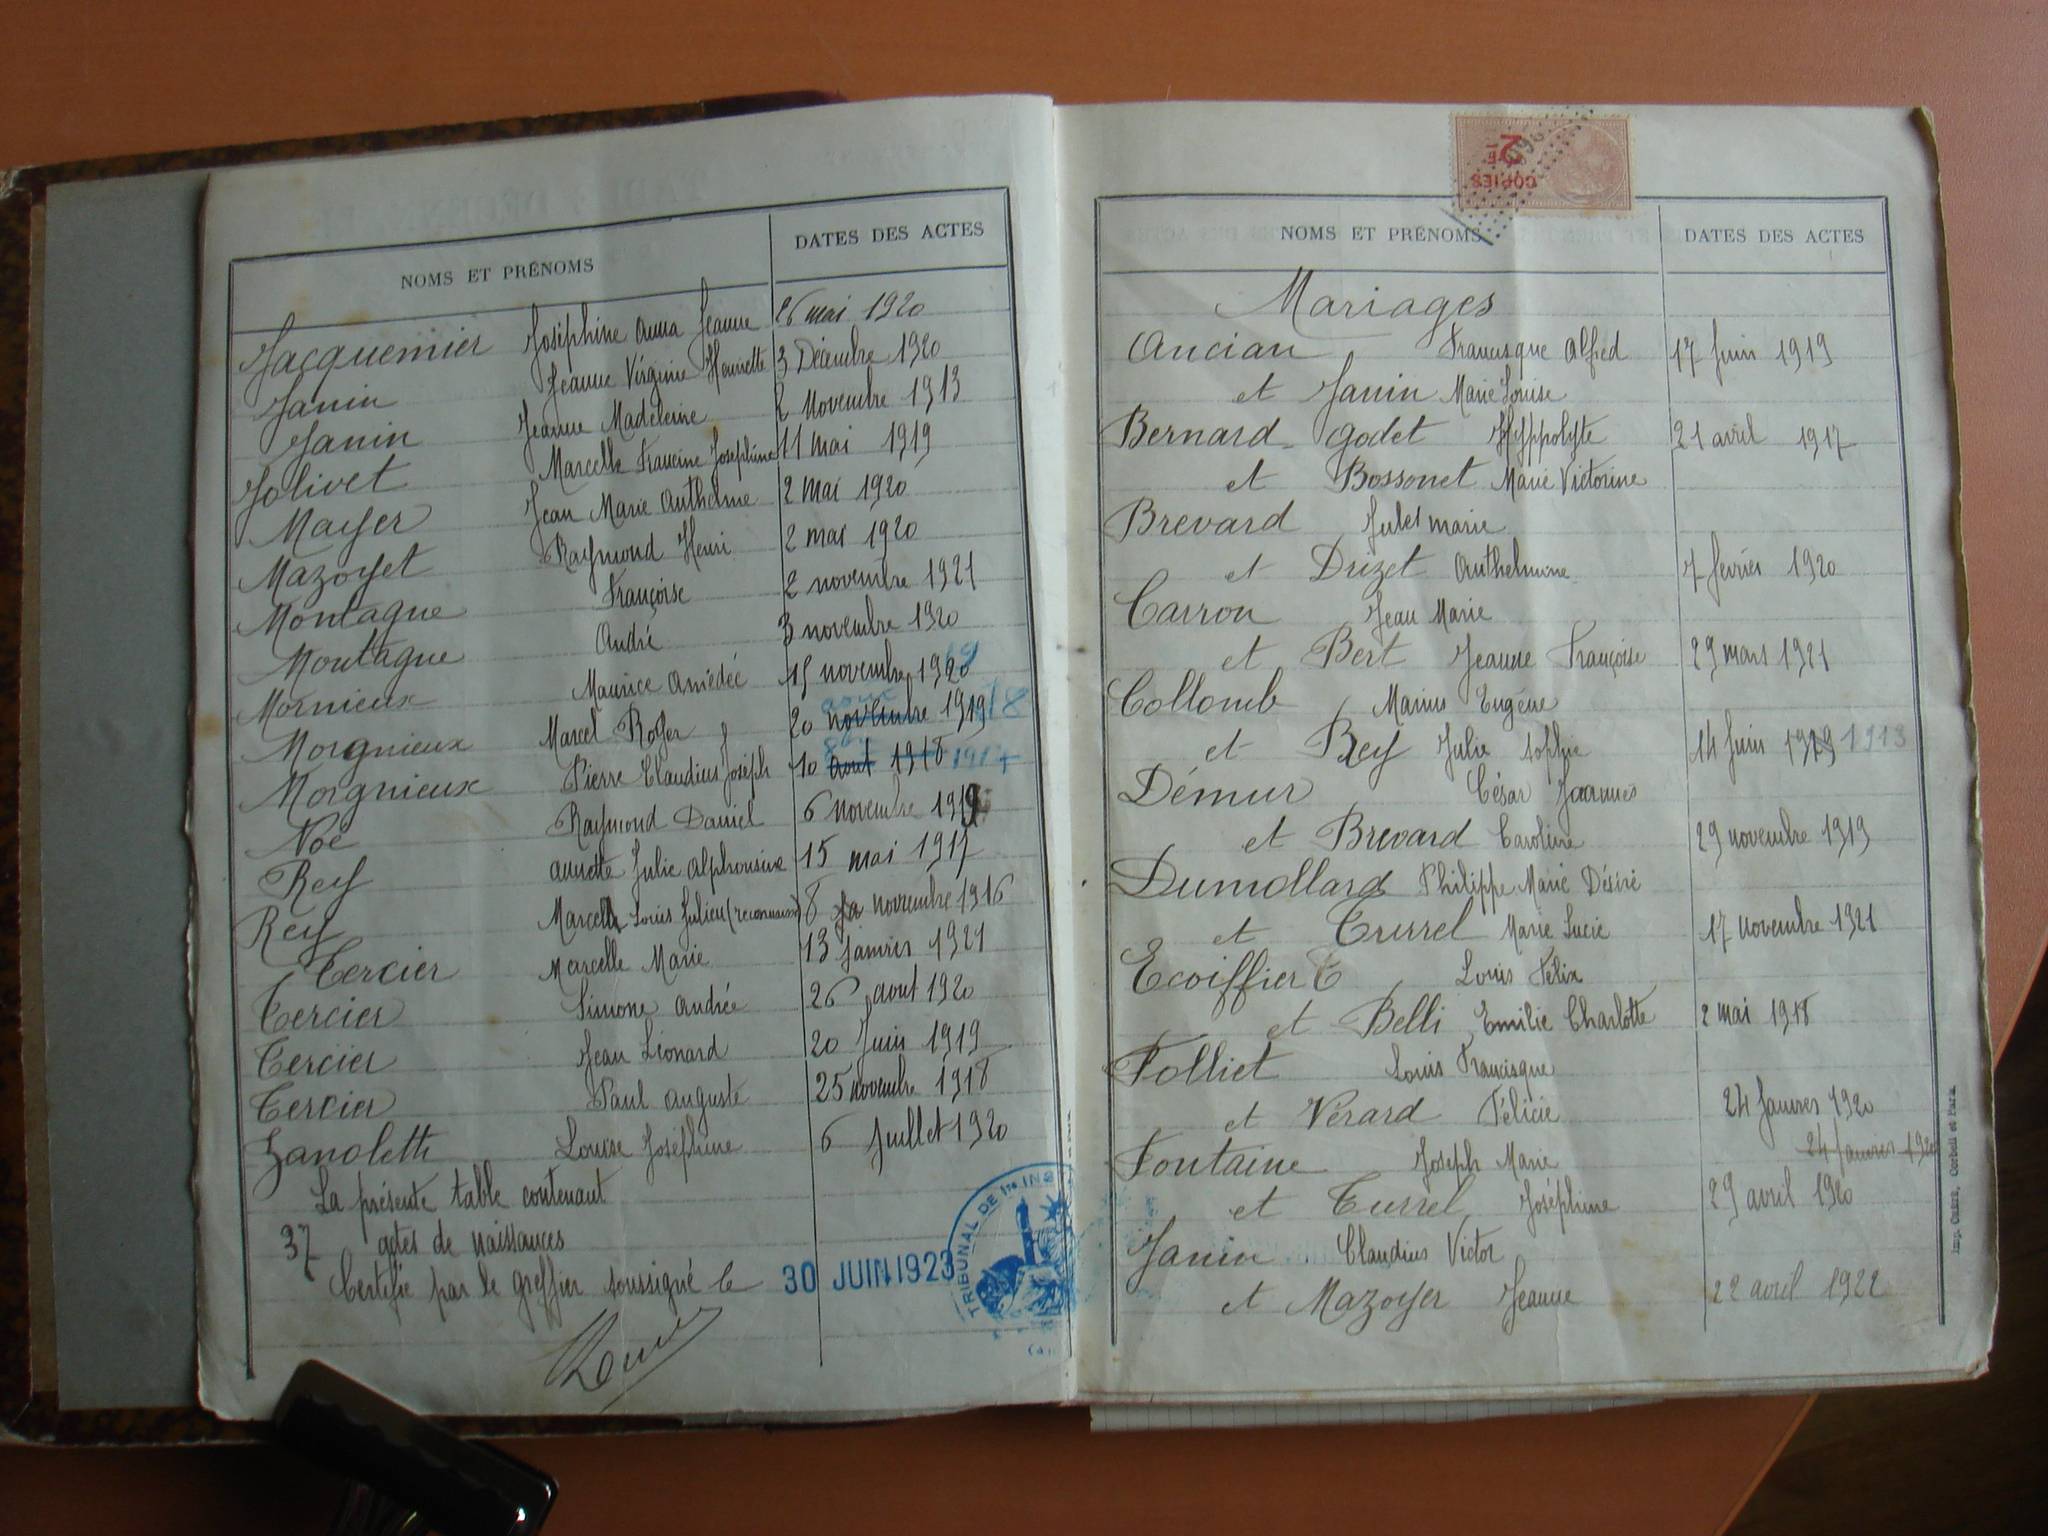 NOMS ET PRÉNOMS DATES DES ACTES
Jacquemier Joséphine Anna Jeanne 26 mai 1920
Janin Jeanne Virginie Henriette 3 Décembre 1920
Janin Jeanne Madeleine 2 Novembre 1913
Jolivet Marcelle Francine Joséphine 11 mai 1919
Mayer Jean Marie Anthelme 2 mai 1920
Mazoyet Raymond Henri 2 mai 1920
Montagne Françoise 2 novembre 1921
Montagne André 3 novembre 1920
Mornieux Maurice Amédée 15 novembre 1920
Morgnieux Marcel Roger 20 novembre 1919 18
Morgnieux Pierre Claudius Joseph 10 aout 1918 1917
Noë Raymond Daniel 6 novembre 1919
Rey Annette Julie Alphonsine 15 mai 1917
Rey Marcel Louis Julien (reconnaiss) 8 novembre 1916
Tercier Marcelle Marie 13 janvier 1921
Tercier Simone Andrée 26 aout 1920
Tercier Jean Léonard 20 Juin 1919
Tercier Paul Auguste 25 novembre 1918
Zanoletti Louise Joséphine 6 Juillet 1920
La présente table contenant
37 actes de naissances
Certifié par le greffier soussigné le 30 JUIN 1923
TRIBUNAL DE 1re INS
COPIES
2 F
NOMS ET PRÉNOMS DATES DES ACTES
Mariages
Ancian Francisque Alfred 17 Juin 1919
et Janin Marie Louise
Bernard-Godet Hyppolyte 21 avril 1917
et Bossonet Marie Victorine
Brevard Jules marie
et Drizet Anthelmine 7 février 1920
Carron Jean Marie
et Bert Jeanne Françoise 29 mars 1921
Collomb Marius Eugène
et Rey Julie Sophie 14 Juin 1919 1913
Démur César Joannès
et Brevard Caroline 29 novembre 1919
Dumollard Philippe Marie Désiré
et Turrel Marie Lucie 17 novembre 1921
Ecoiffier Louis Félix
et Belli Emilie Charlotte 2 mai 1918
Folliet Louis Francisque
et Vérard Félicie 24 Janvier 1920
Fontaine Joseph Marie 24 Janvier 1920
et Turrel Joséphine 29 avril 1920
Janin Claudius Victor
et Mazoyer Jeanne 22 avril 1922